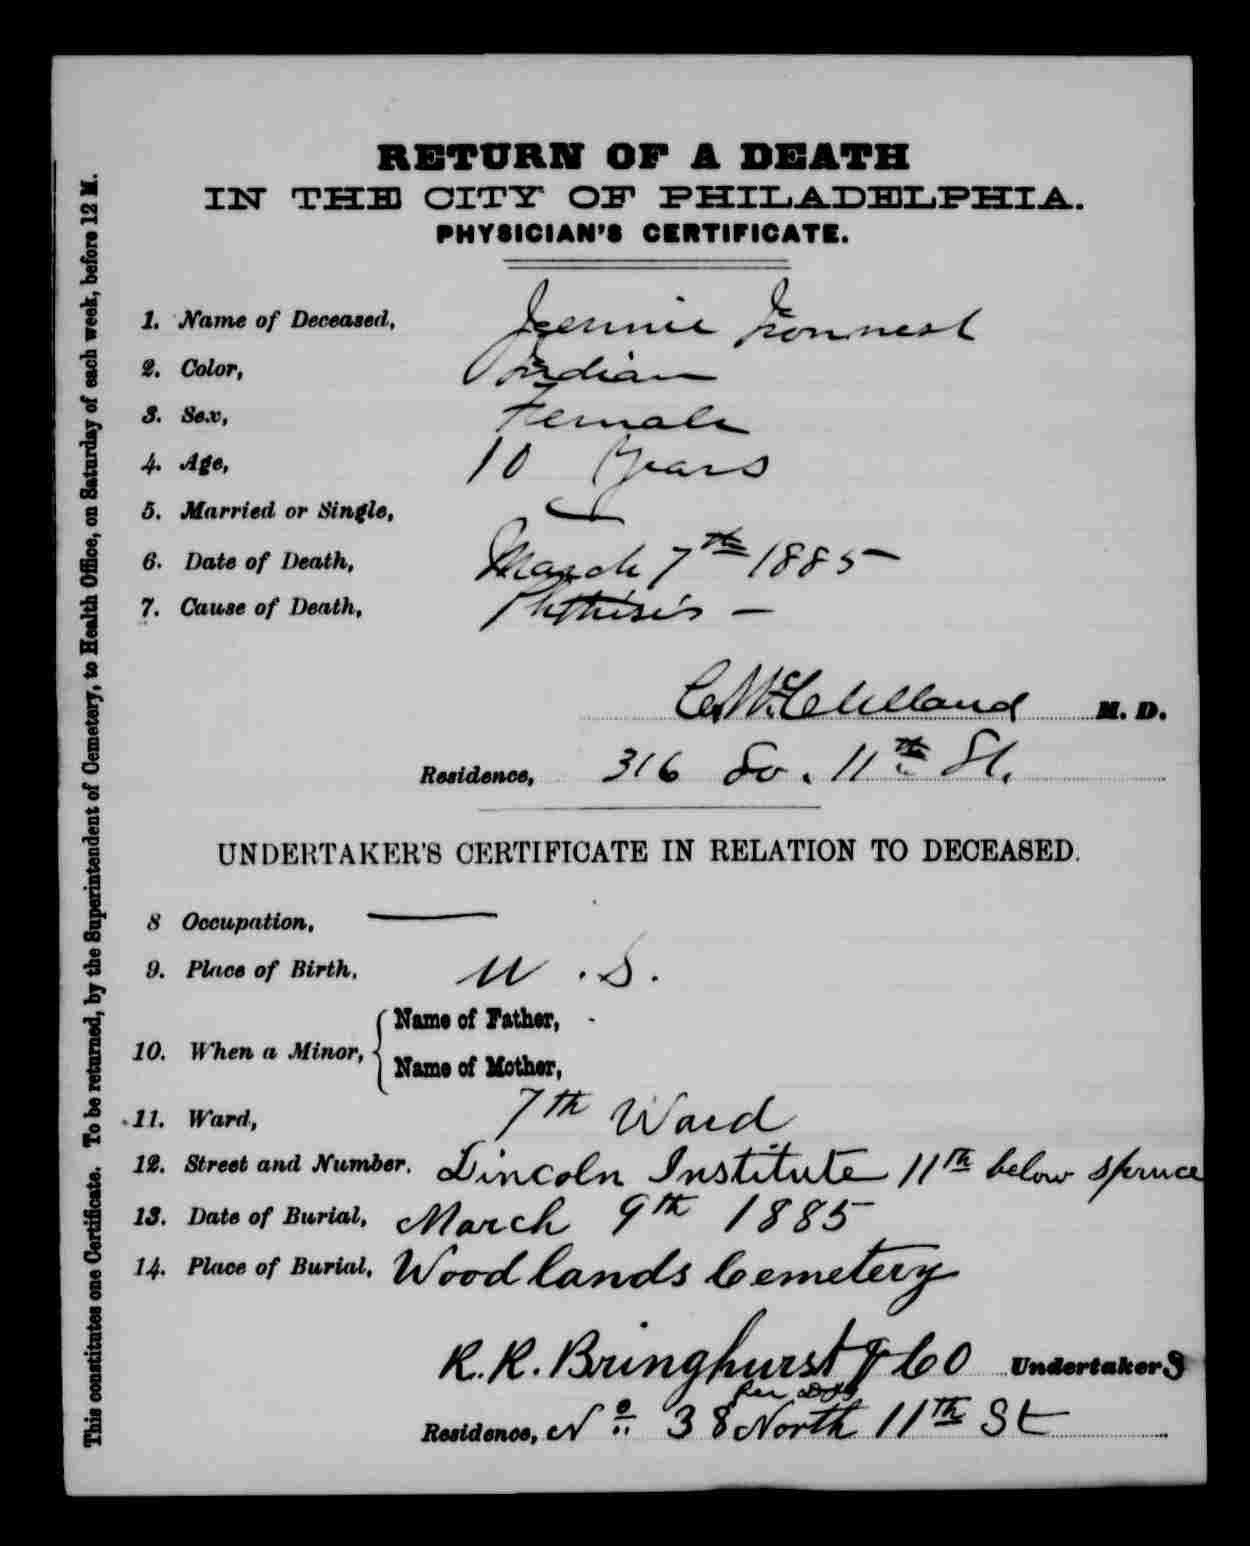 RETURN OF A DEATH
IN THE CITY OF PHILADELPHIA.
PHYSICIAN'S CERTIFICATE.
1. Name of Deceased, Jennie Ironnest
2. Color, Indian
3. Sex, Female
4. Age, 10 Years
5. Married or Single,
6. Date of Death, March 7th 1885
7. Cause of Death, Phthisis —
C. McClelland M. D.
Residence, 316 So. 11th St.
UNDERTAKER'S CERTIFICATE IN RELATION TO DECEASED.
8 Occupation, —
9. Place of Birth, U.S.
10. When a Minor, { Name of Father, -
Name of Mother,
11. Ward, 7th Ward
12. Street and Number, Lincoln Institute 11th below Spruce
13. Date of Burial, March 9th 1885
14. Place of Burial, Woodlands Cemetery
R.R. Bringhurst & Co Undertakers
per
Residence, No. 38 North 11th St
This constitutes one Certificate. To be returned, by the Superintendent of Cemetery, to Health Office, on Saturday of each week, before 12 M.